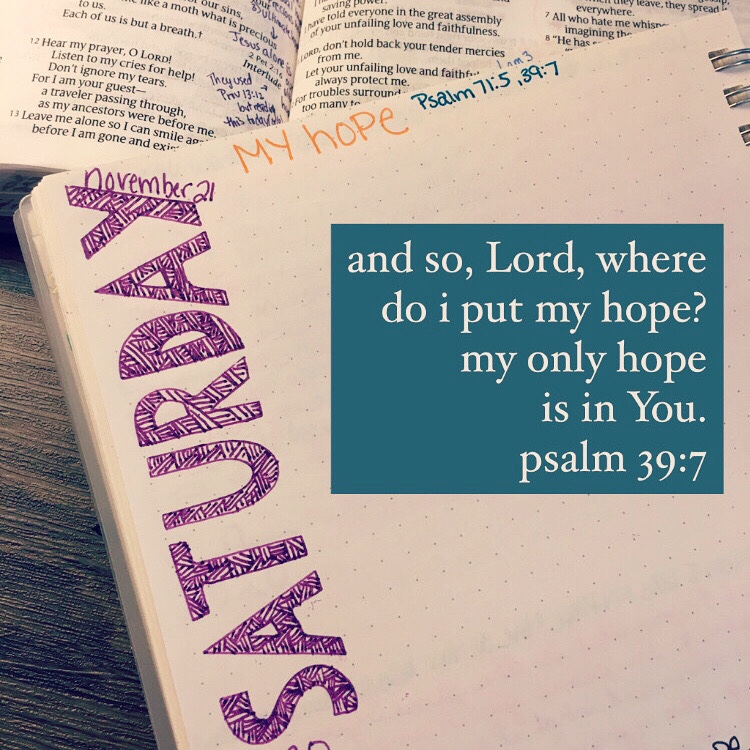 to us.
our sins,
like a moth what is precious
Each of us is but a breath.
Jesus alone
Interlude
12 Hear my prayer, O LORD!
Listen to my cries for help!
Don't ignore my tears.
For I am your guest—
a traveler passing through,
as my ancestors were before me.
13 Leave me alone so I can smile
before I am gone and
They used
Prov 13:12
but read
this today
saving power.
have told everyone in the great assembly
of your unfailing love and faithfulness.
LORD, don't hold back your tender mercies
from me.
Let your unfailing love and
always protect me.
For troubles surround
too many
they leave, they spread it
everywhere.
7 All who hate me
imagining the
8 "He has
MY hope
Psalm 71:5, 39:7
november 21
SATURDAY
and so, Lord, where
do i put my hope?
my only hope
is in You.
psalm 39:7